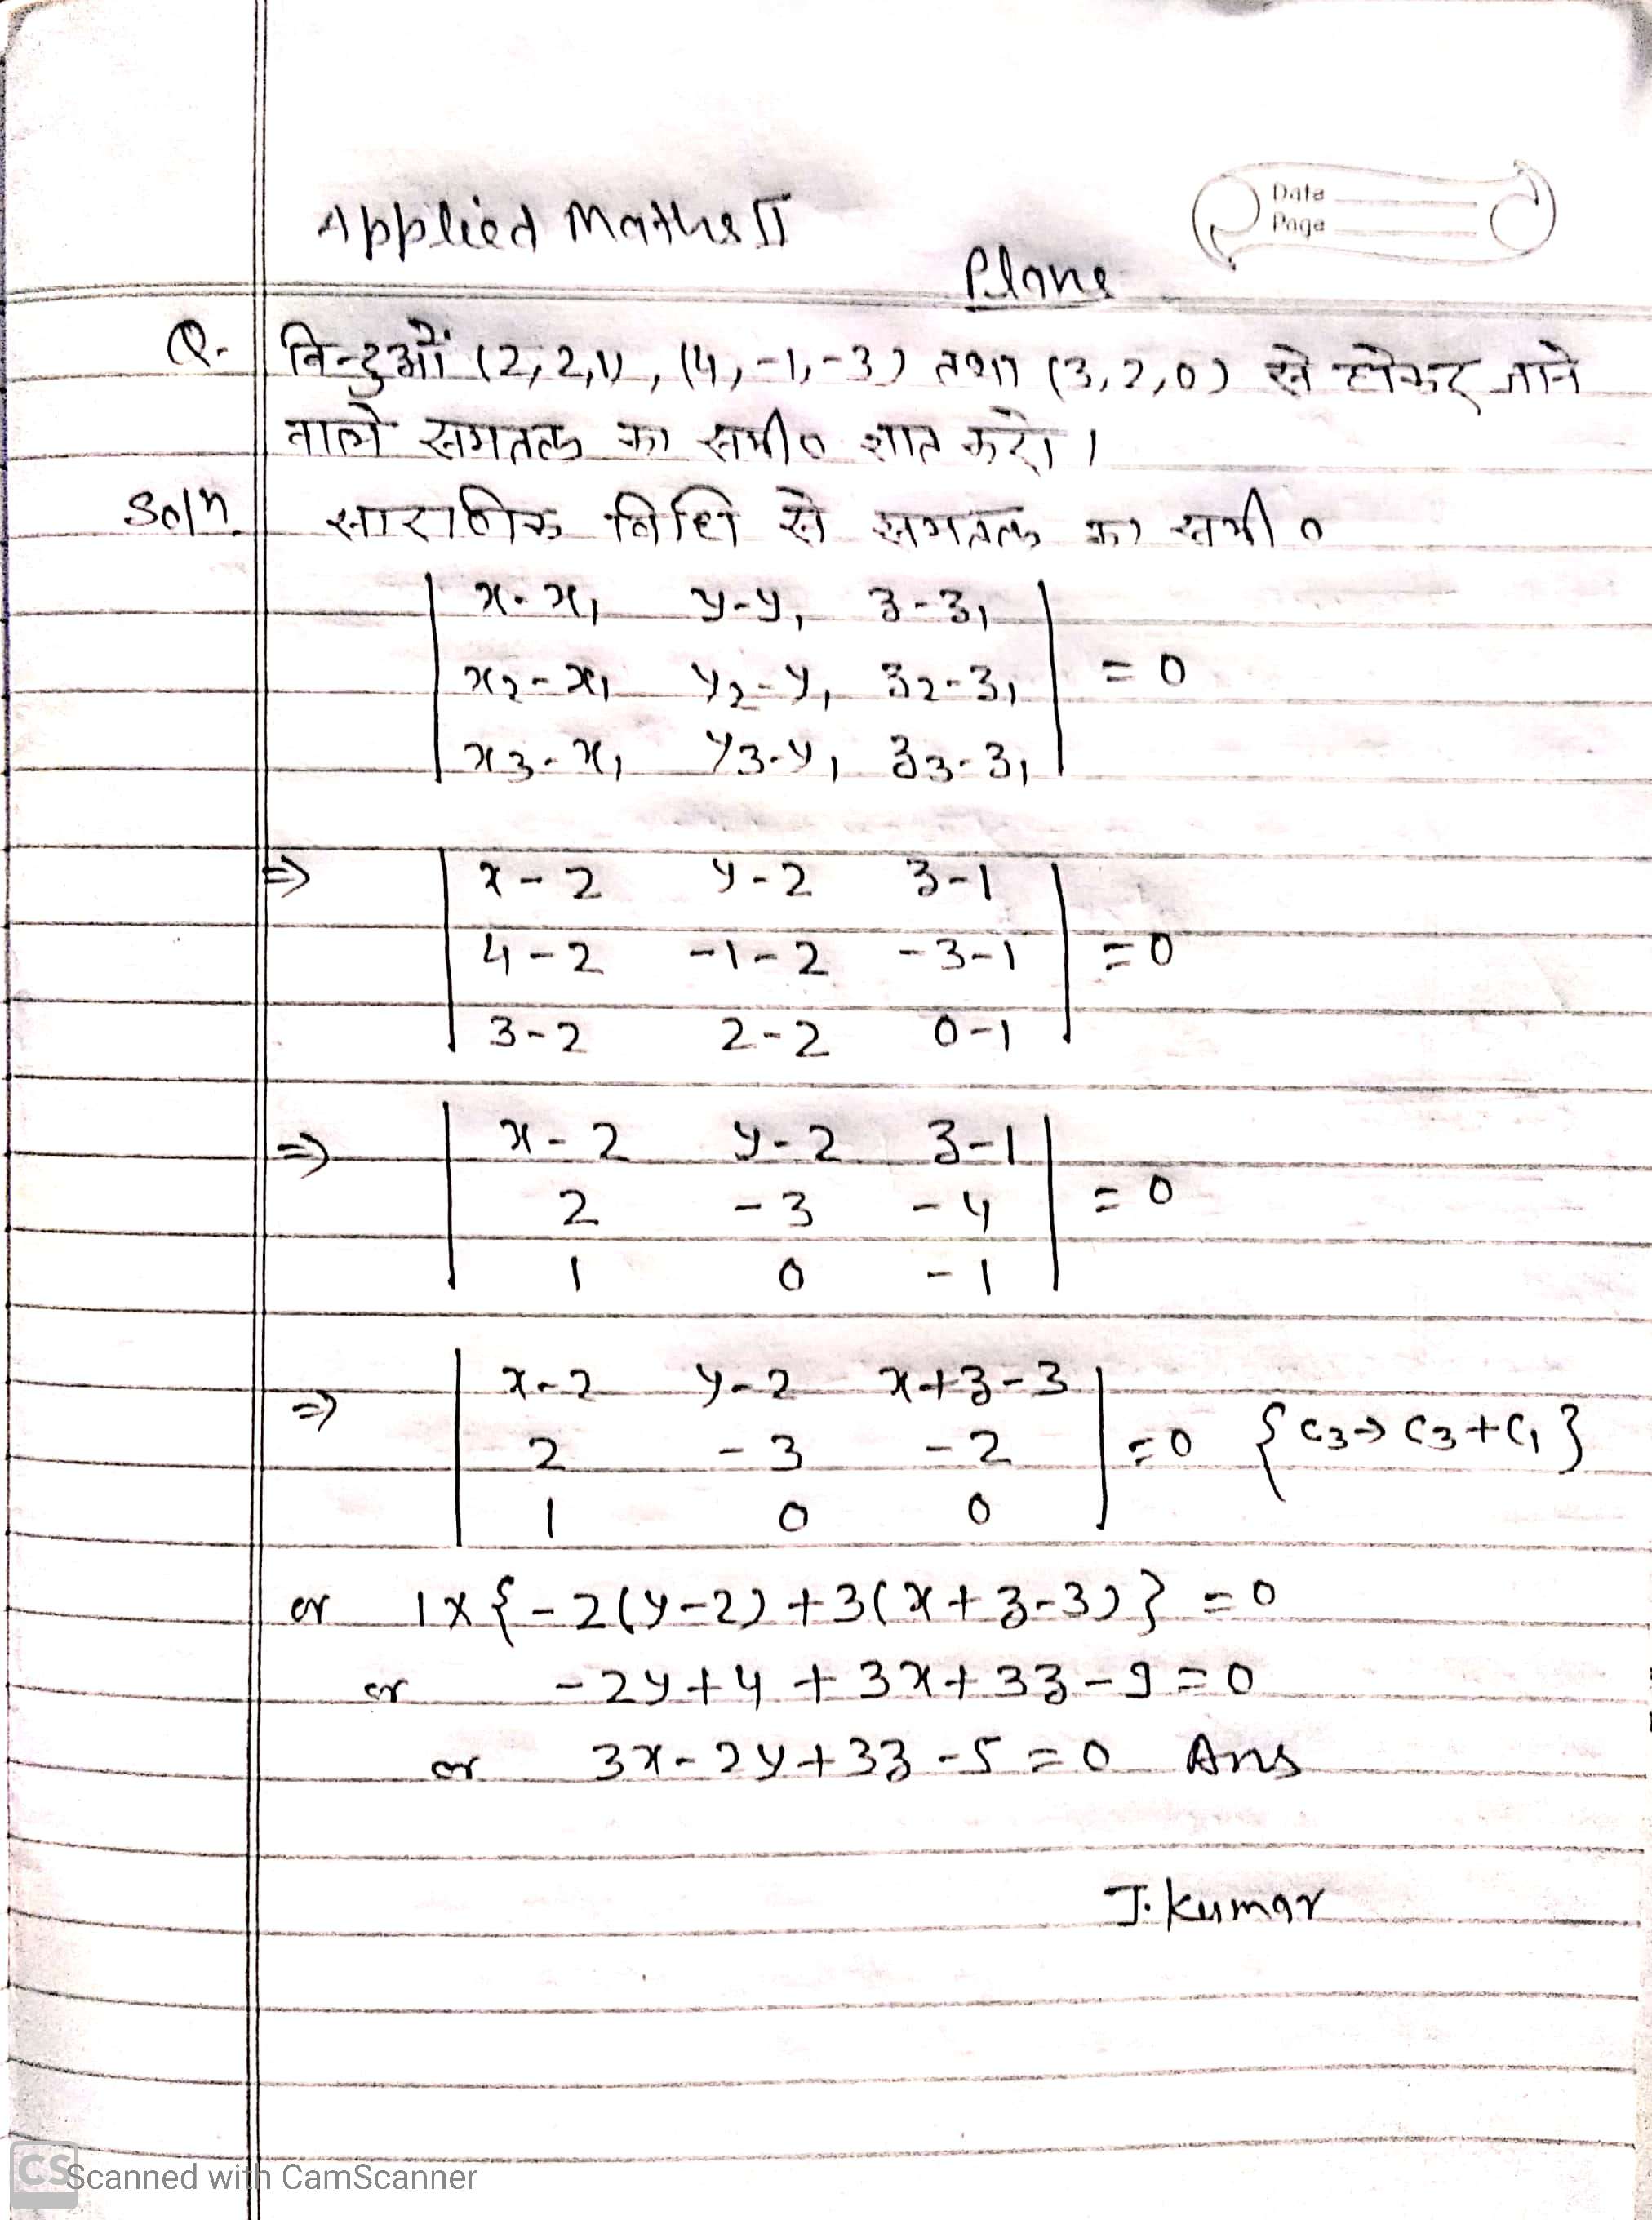 Applied Maths II
Date
Page
Plane
Q. बिन्दुओं (2,2,1), (4,-1,-3) तथा (3,2,0) से होकर जाने
वाले समतल का समी० ज्ञात करो।
Soln. सारणिक विधि से समतल का समी०
| x-x₁ y-y₁ z-z₁ |
| x₂-x₁ y₂-y₁ z₂-z₁ | = 0
| x₃-x₁ y₃-y₁ z₃-z₁ |
⇒ | x-2 y-2 z-1 |
| 4-2 -1-2 -3-1 | = 0
| 3-2 2-2 0-1 |
⇒ | x-2 y-2 z-1 |
| 2 -3 -4 | = 0
| 1 0 -1 |
⇒ | x-2 y-2 x+z-3 |
| 2 -3 -2 | = 0 {C₃→C₃+C₁}
| 1 0 0 |
or 1x{-2(y-2)+3(x+z-3)} = 0
or -2y+4+3x+3z-9=0
or 3x-2y+3z-5=0 Ans
J. Kumar
CS Scanned with CamScanner